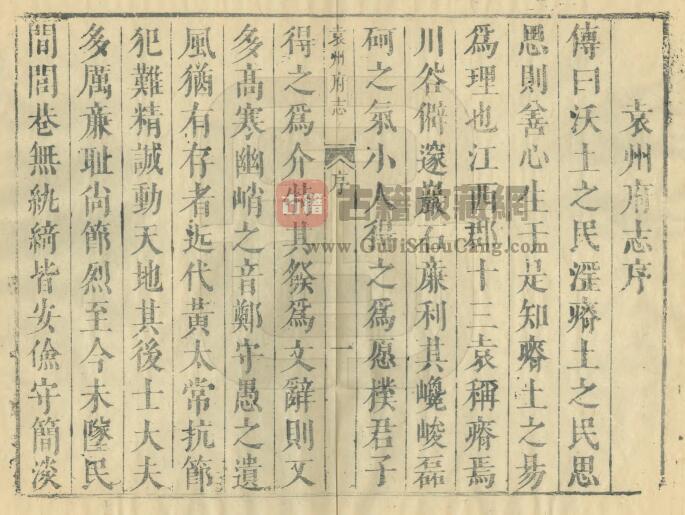 袁州府志序
傳曰沃土之民淫瘠土之民思
思則善心生于是知瘠土之易
爲理也江西郡十三袁稱瘠焉
川谷僻邃巖石亷利其巉峻磊
砢之氣小人得之爲愿樸君子
袁州府志
序
一
得之爲介特其發爲文辭則又
多高寒幽峭之音鄭守愚之遺
風猶有存者近代黃太常抗節
犯難精誠動天地其後士大夫
多厲亷耻尚節烈至今未墜民
間閭巷無紈綺皆安儉守簡淡
古籍
古籍收藏網
www.GuJiShouCang.com